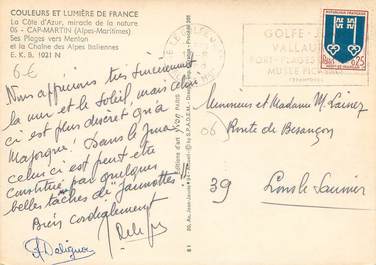 COULEURS ET LUMIÈRE DE FRANCE
La Côte d'Azur, miracle de la nature
06 - CAP-MARTIN (Alpes-Maritimes)
Ses Plages vers Menton
et la Chaîne des Alpes Italiennes
E. K. B. 1021 N
6€
Nous apprécions très sincèrement
la mer et le soleil, mais celui
ci est plus discret qu'à
Majorque! Dans le Jura
celui ci est peut être
constitué par quelques
belles taches de "jaunottes"!
Bien cordialement
Editions d'art PARIS
GOLFE-J
VALLAU
PORT-PLAGES
MUSÉE PIC
REPUBLIQUE FRANCAISE
0,25
Monsieur et Madame M. Lainez
06 Route de Besançon
39 Lons le Saunier